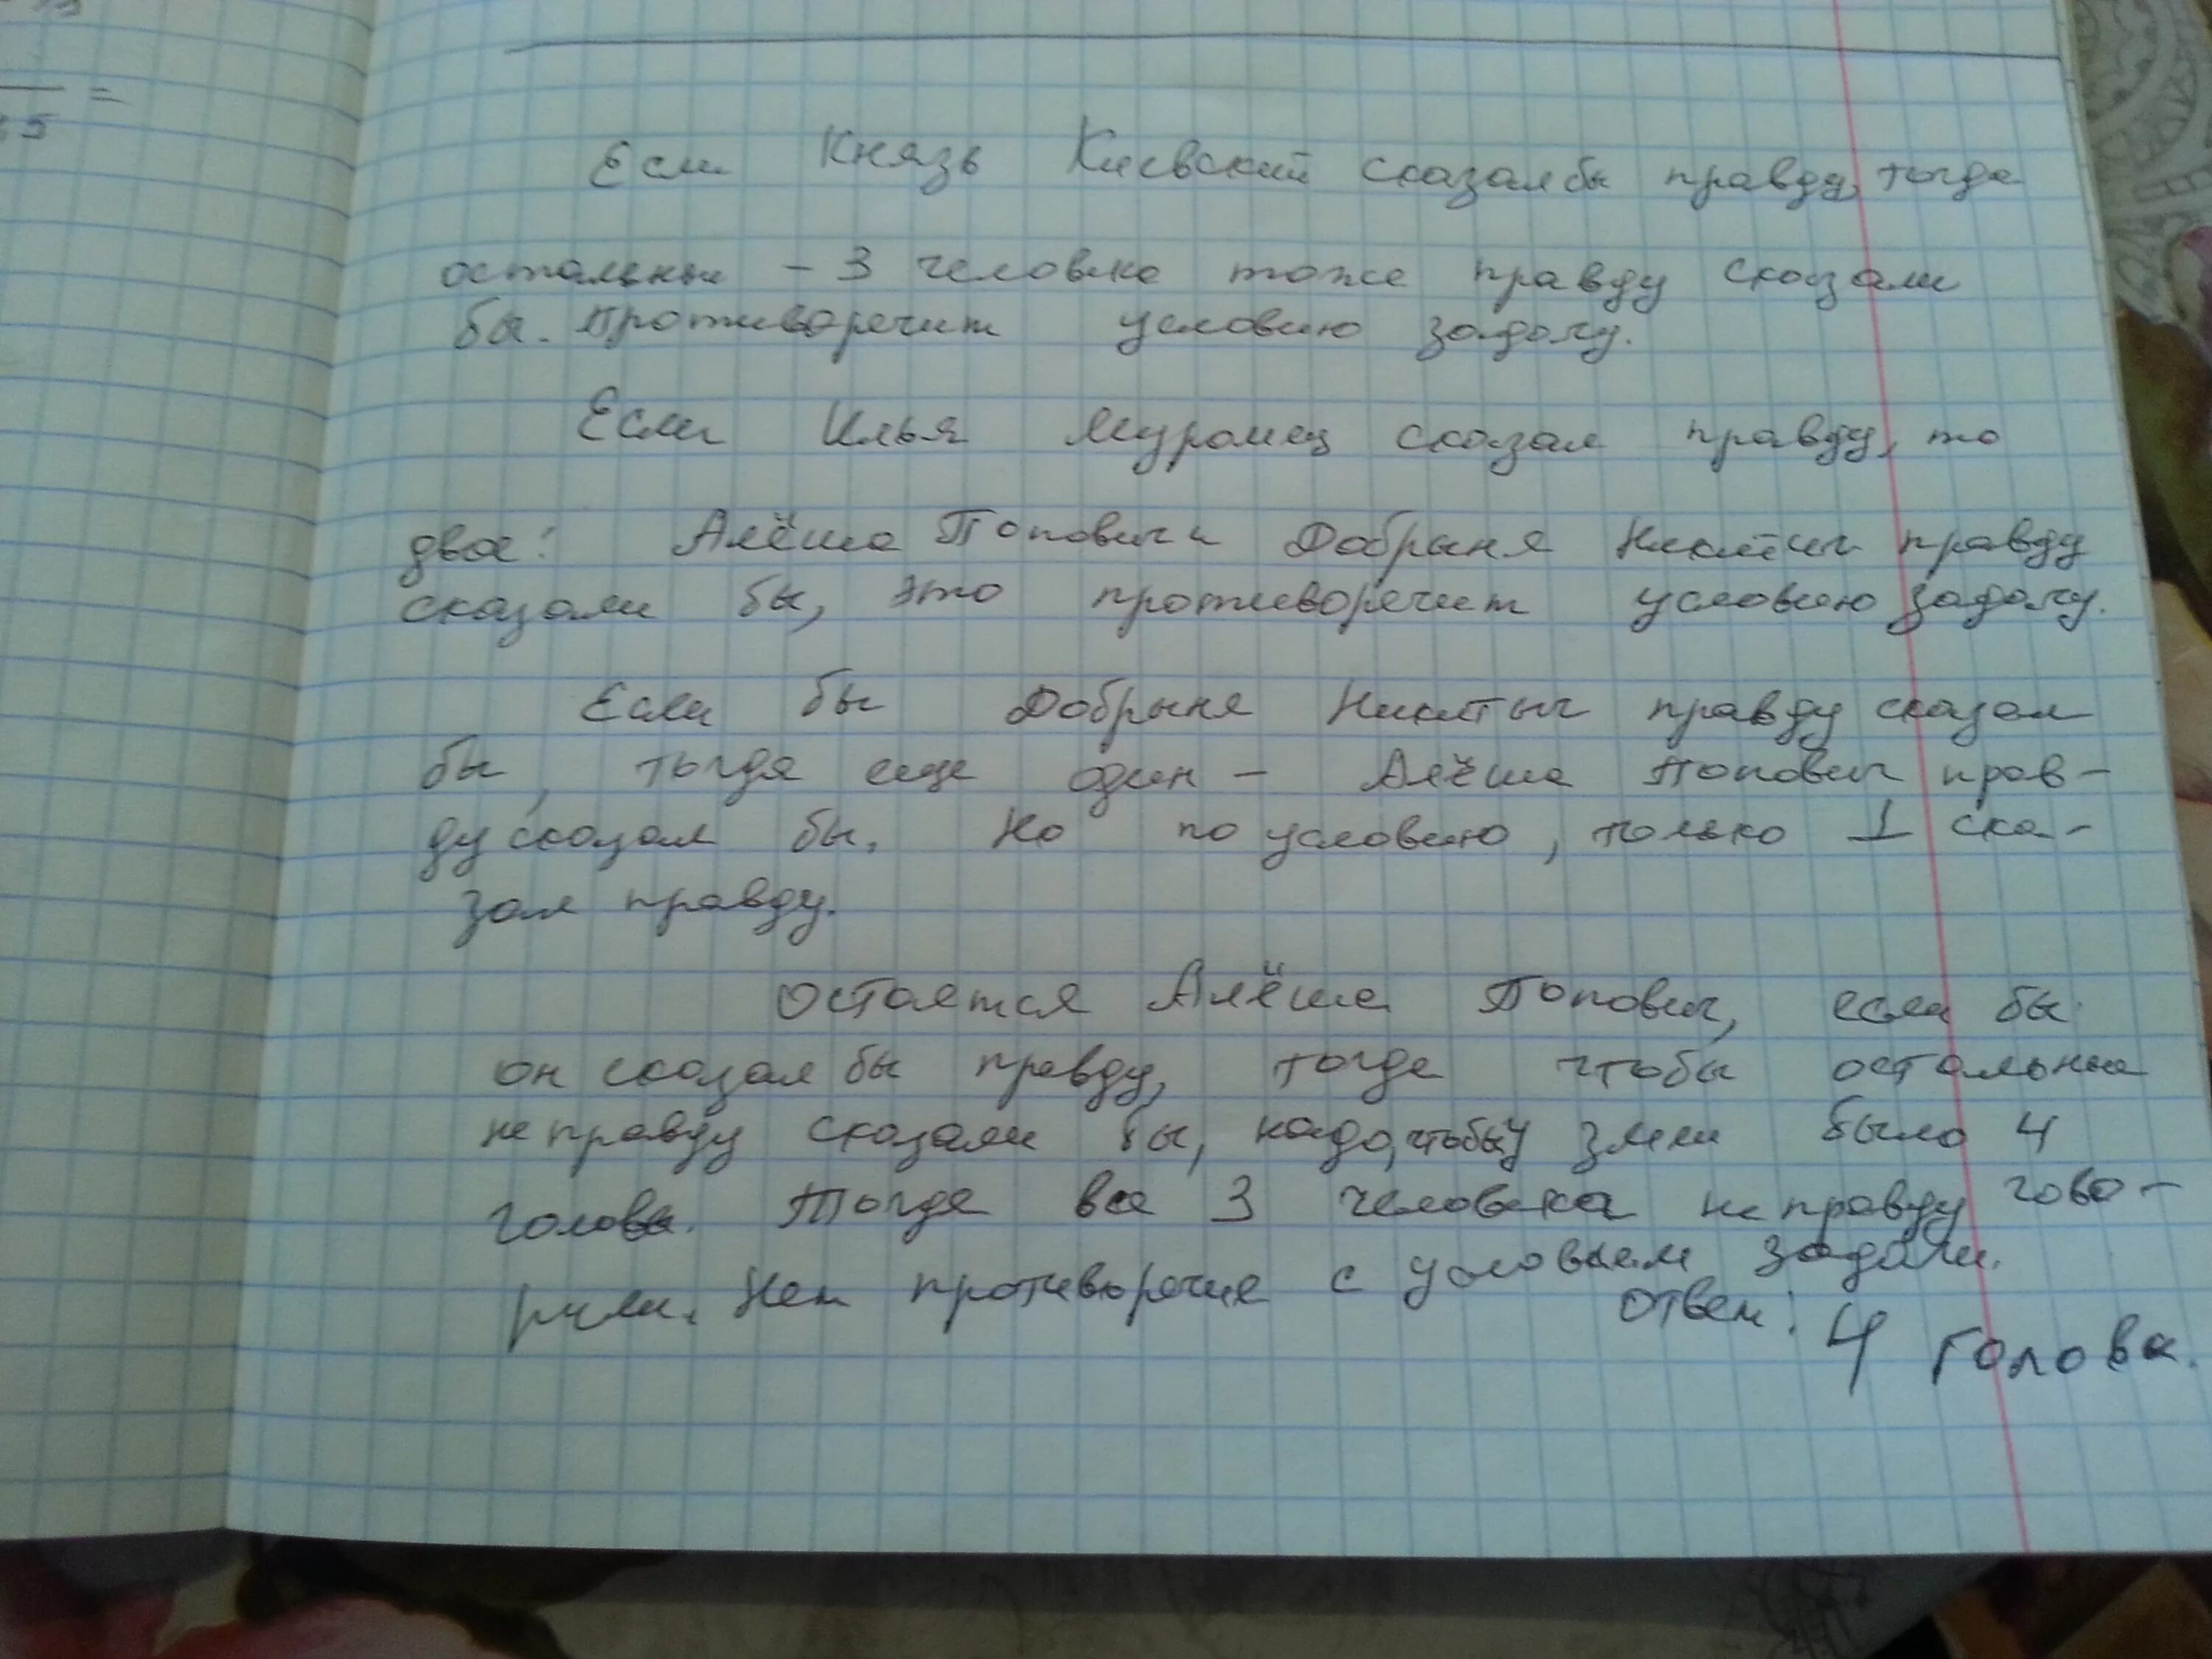 =
5
Если Князь Киевский сказал бы правду, тогда
остальные - 3 человека тоже правду сказали
бы. Противоречит условию задачу.
Если Илья Муромец сказал правду, то
двое: Алёша Попович и Добрыня Никитич правду
сказали бы, это противоречит условию задачу.
Если бы Добрыня Никитыч правду сказал
бы, тогда еще один - Алёша Попович прав-
ду сказал бы. Но по условию, только 1 ска-
зал правду.
Остается Алёша Попович, если бы
он сказал бы правду, тогда чтобы остальные
неправду сказали бы, надо, чтобы у змеи было 4
голова. Тогда все 3 человека неправду гово-
рили. Нет противоречие с условием задачи.
Ответ: 4 голова.